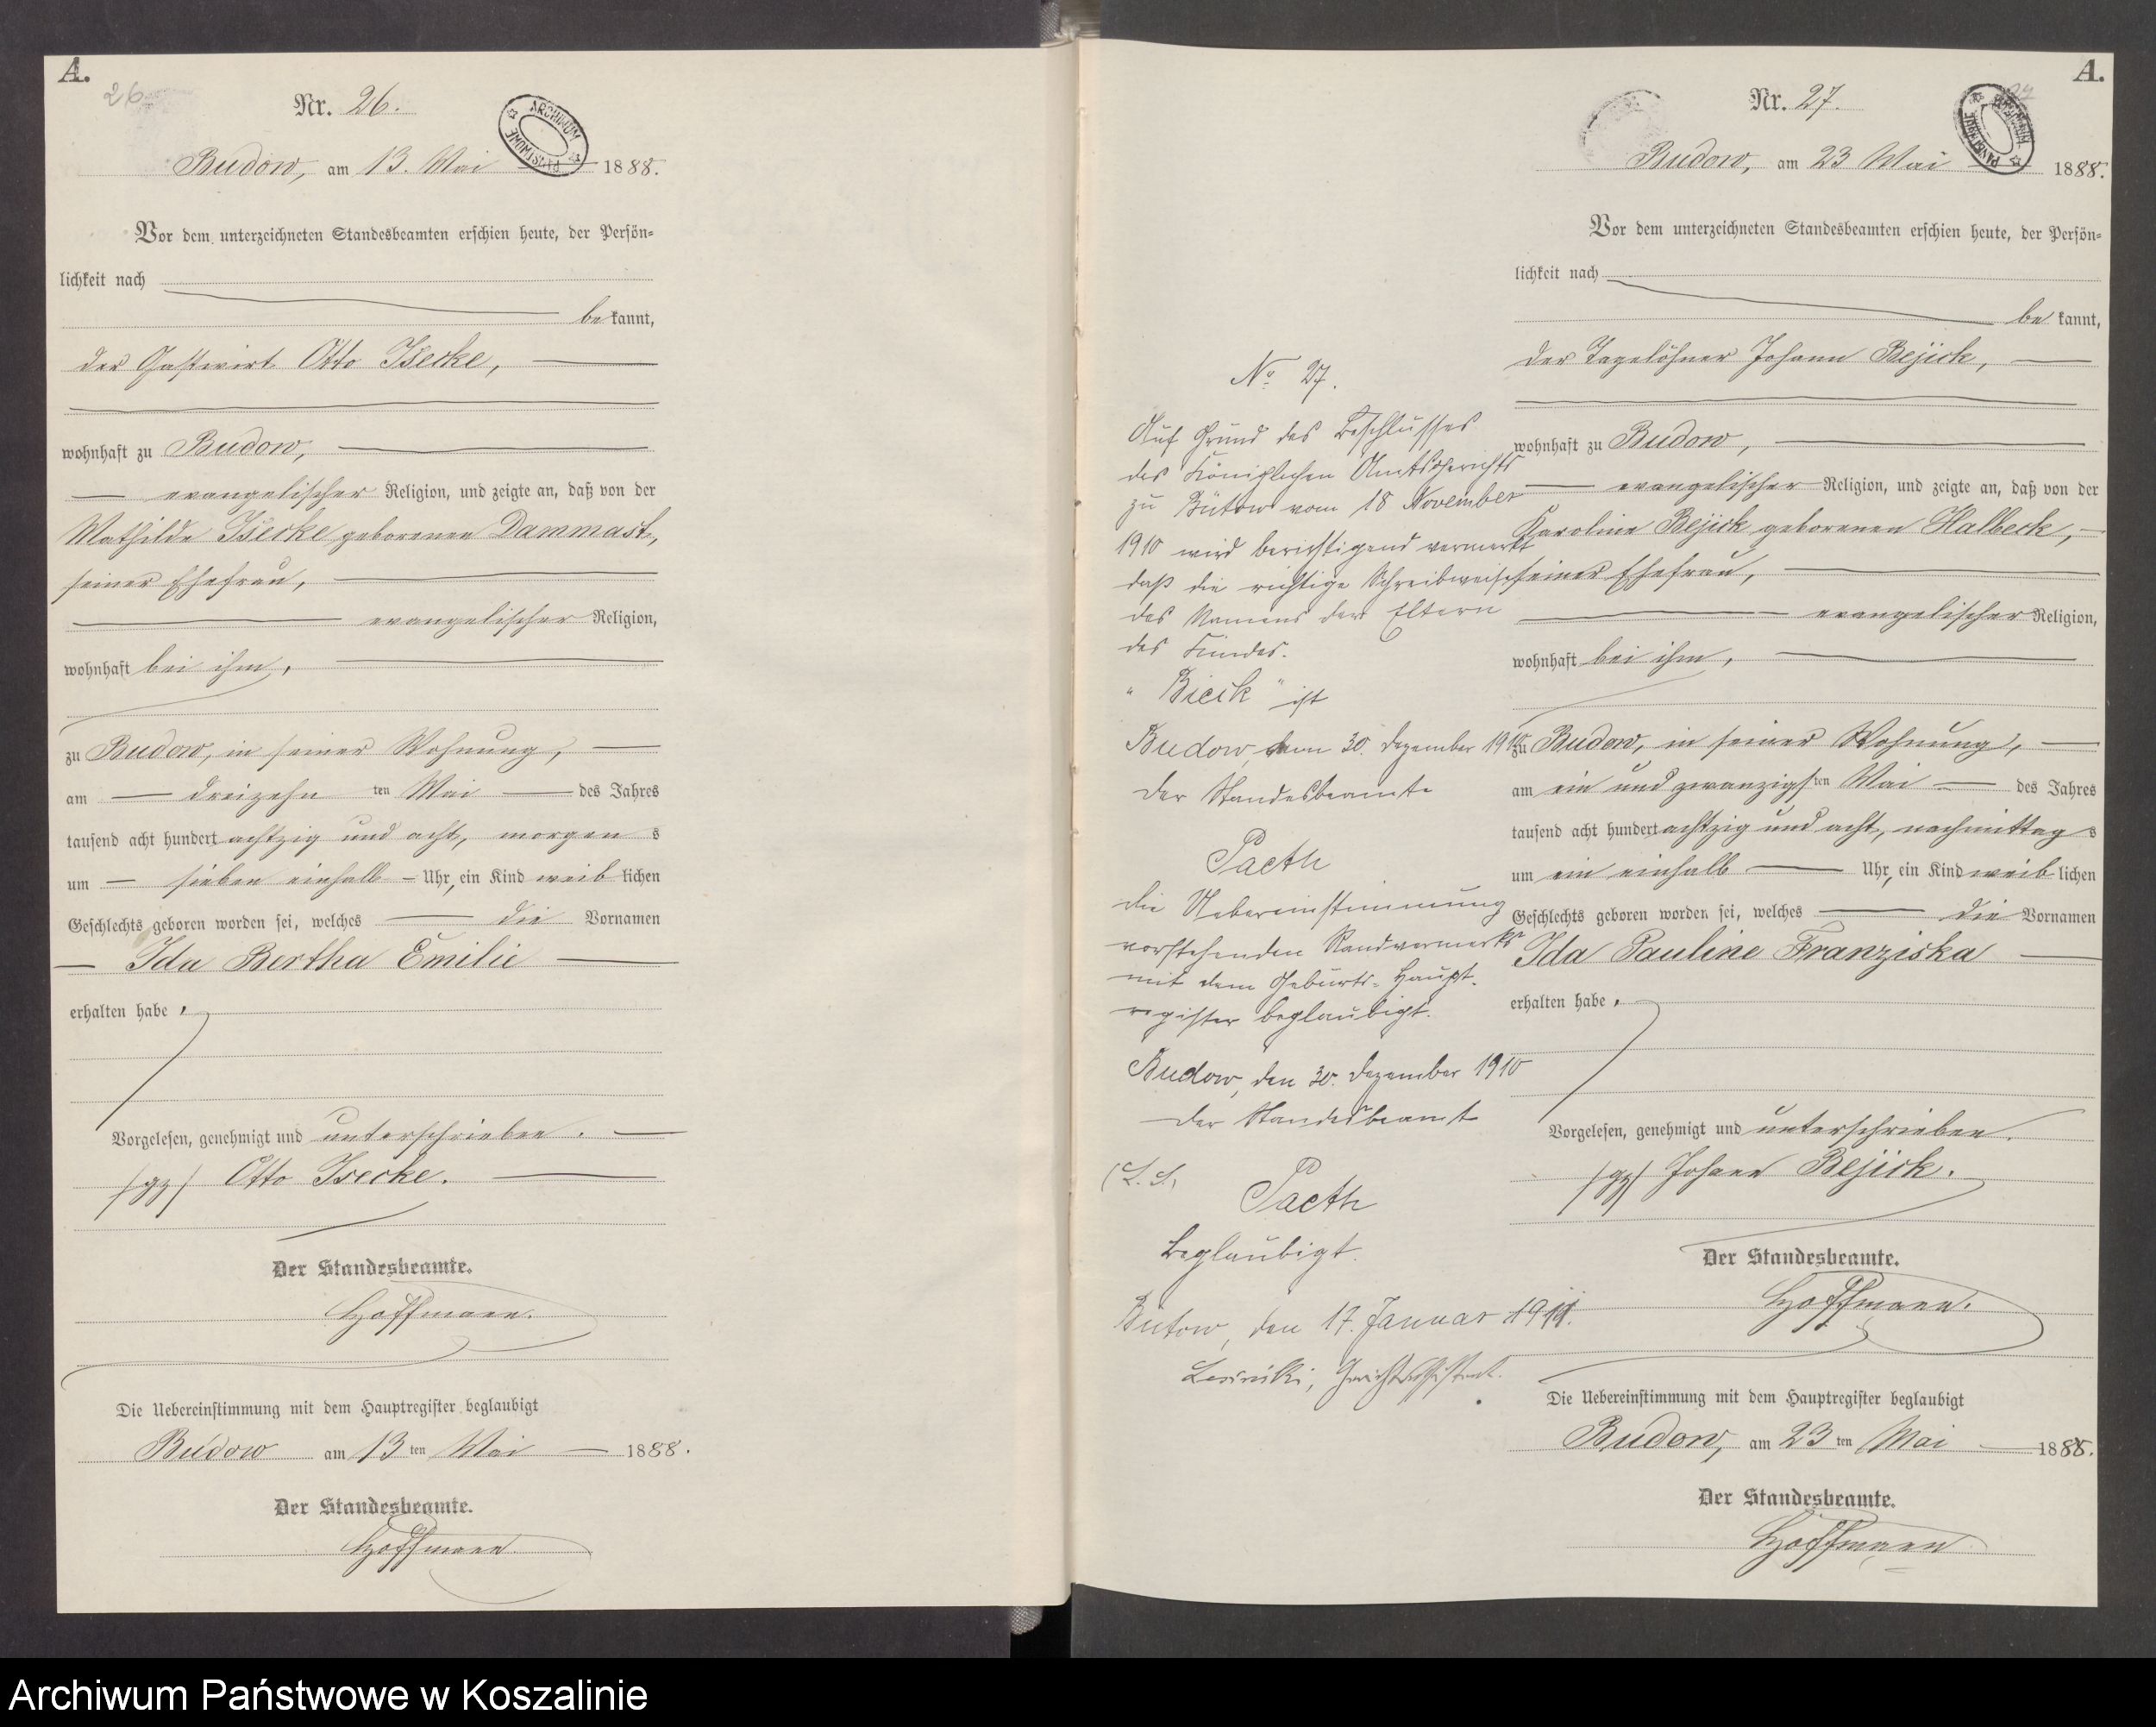 A.
26
Nr. 26.
ARCHIWUM PAŃSTWOWE
Budow, am 13. Mai 1888.
Vor dem unterzeichneten Standesbeamten erschien heute, der Persön-
lichkeit nach
be kannt,
der Gastwirt Otto Isecke,
wohnhaft zu Budow,
evangelischer Religion, und zeigte an, daß von der
Mathilde Isecke geborenen Dammast,
seiner Ehefrau,
evangelischer Religion,
wohnhaft bei ihm,
zu Budow, in seiner Wohnung,
am dreizehn ten Mai des Jahres
tausend acht hundert achtzig und acht, morgen s
um sieben einhalb Uhr, ein Kind weib lichen
Geschlechts geboren worden sei, welches die Vornamen
Ida Bertha Emilie
erhalten habe.
Vorgelesen, genehmigt und unterschrieben.
/gz/ Otto Isecke.
Der Standesbeamte.
Hoffmann.
Die Uebereinstimmung mit dem Hauptregister beglaubigt
Budow am 13 ten Mai 1888.
Der Standesbeamte.
Hoffmann
No 27.
Auf Grund des Beschlusses
des Königlichen Amtsgerichts
zu Bütow vom 18 November
1910 wird berichtigend vermerkt
daß die richtige Schreibweise
des Namens der Eltern
des Kindes.
"Biecik" ist
Budow, den 30. Dezember 1910
Der Standesbeamte
Paeth
Die Uebereinstimmung
vorstehenden Randvermerks
mit dem Geburts-Haupt-
register beglaubigt.
Budow, den 30. Dezember 1910
Der Standesbeamt
(L.S.
Paeth
Beglaubigt.
Bütow, den 17. Januar 1911.
Gerichtsassistent.
A.
27
Nr. 27.
ARCHIWUM PAŃSTWOWE
Budow, am 23 Mai 1888.
Vor dem unterzeichneten Standesbeamten erschien heute, der Persön-
lichkeit nach
be kannt,
der Tagelöhner Johann Bejick,
wohnhaft zu Budow,
evangelischer Religion, und zeigte an, daß von der
Karoline Bejick geborenen Halbeck,
seiner Ehefrau,
evangelischer Religion,
wohnhaft bei ihm,
zu Budow, in seiner Wohnung,
am ein und zwanzigs ten Mai des Jahres
tausend acht hundert achtzig und acht, nachmittag s
um ein einhalb Uhr, ein Kind weib lichen
Geschlechts geboren worden sei, welches die Vornamen
Ida Pauline Franziska
erhalten habe.
Vorgelesen, genehmigt und unterschrieben.
/gz/ Johann Bejick.
Der Standesbeamte.
Hoffmann.
Die Uebereinstimmung mit dem Hauptregister beglaubigt
Budow, am 23 ten Mai 1888.
Der Standesbeamte.
Hoffmann
Archiwum Państwowe w Koszalinie